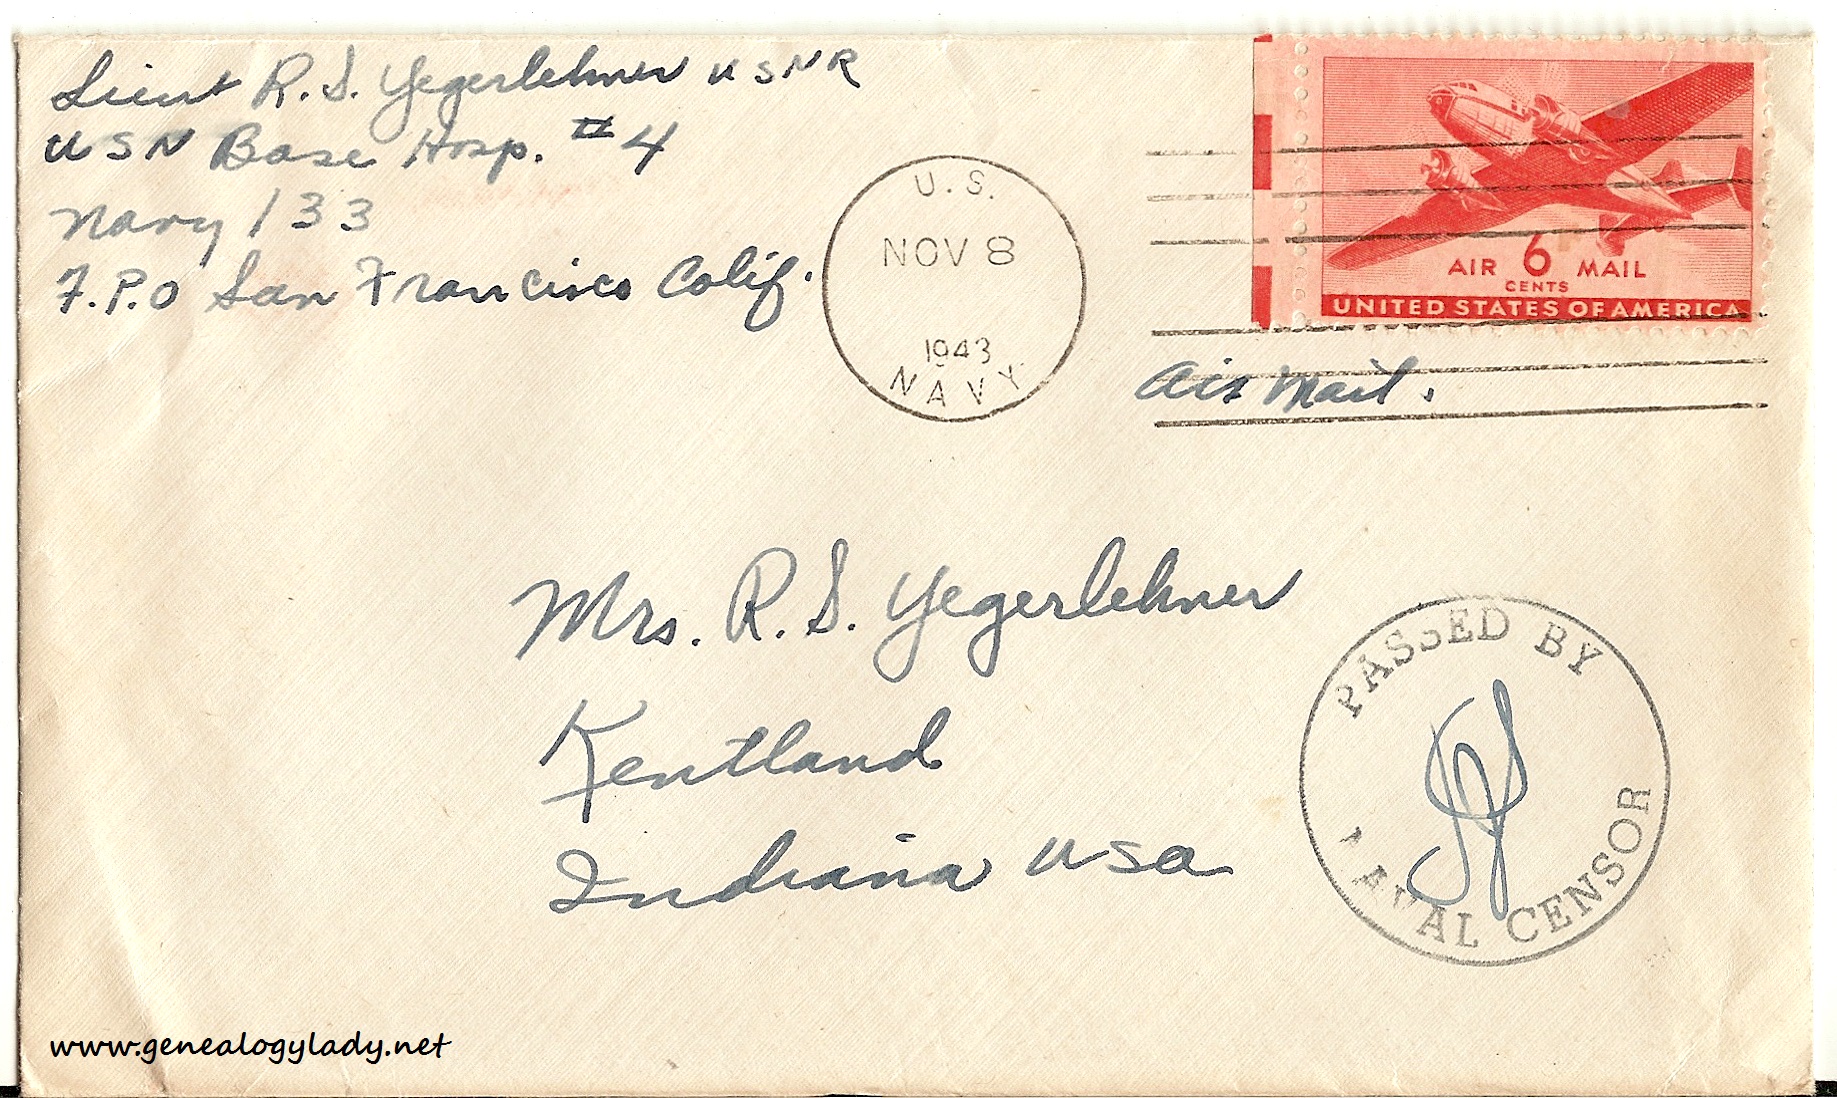 Lieut R. S. Yegerlehner USNR
USN Base Hosp. #4
Navy 133
F.P.O San Francisco Calif.
U.S.
NOV 8
1943
NAVY
6
AIR MAIL
CENTS
UNITED STATES OF AMERICA
Air Mail.
Mrs. R. S. Yegerlehner
Kentland
Indiana USA
PASSED BY
NAVAL CENSOR
www.genealogylady.net